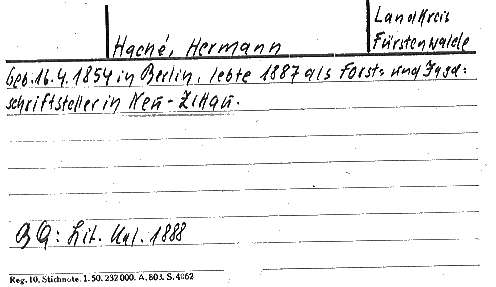 Landkreis
Hachè, Hermann Fürstenwalde
Geb. 16.4.1854 in Berlin, lebte 1887 als Forst- und Jagd-
schriftsteller in Neu-Zittau.
BQ: Lit. Kal. 1888
Reg. 10. Stichnote. 1. 50. 232 000. A. 803. S. 4062